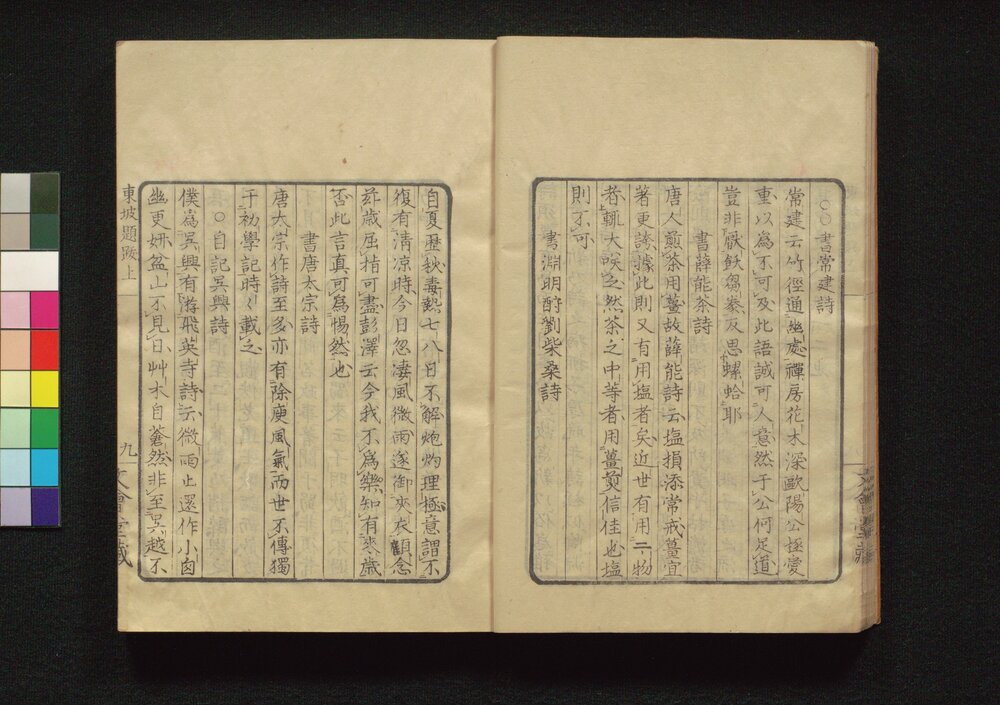 ○○書常建詩
常建云竹徑通幽處禪房花木深歐陽公極愛
重以為不可及此語誠可人意然于公何足道
豈非厭飫芻豢反思螺蛤耶
書薛能茶詩
唐人煎茶用薑故薛能詩云塩損添常戒薑宜
著更誇據此則又有用塩者矣近世有用二物
者輒大咲之然茶之中等者用薑煎信佳也塩
則不可
書淵明酧劉柴桑詩
自夏歷秋毒熱七八日不解炮灼理極意謂不
復有清凉時今日忽凄風微雨遂御夾衣顧念
茲歲屈指可盡彭澤云今我不為樂知有來歲
否此言真可為惕然也
書唐太宗詩
唐太宗作詩至多亦有徐庾風氣而世不傳獨
于初學記時〻載之
○自記吳興詩
僕為吳興有游飛英寺詩云微雨止還作小窗
幽更妍盆山不見日艸木自蒼然非至吳越不
東坡題跋上
九
文會堂藏